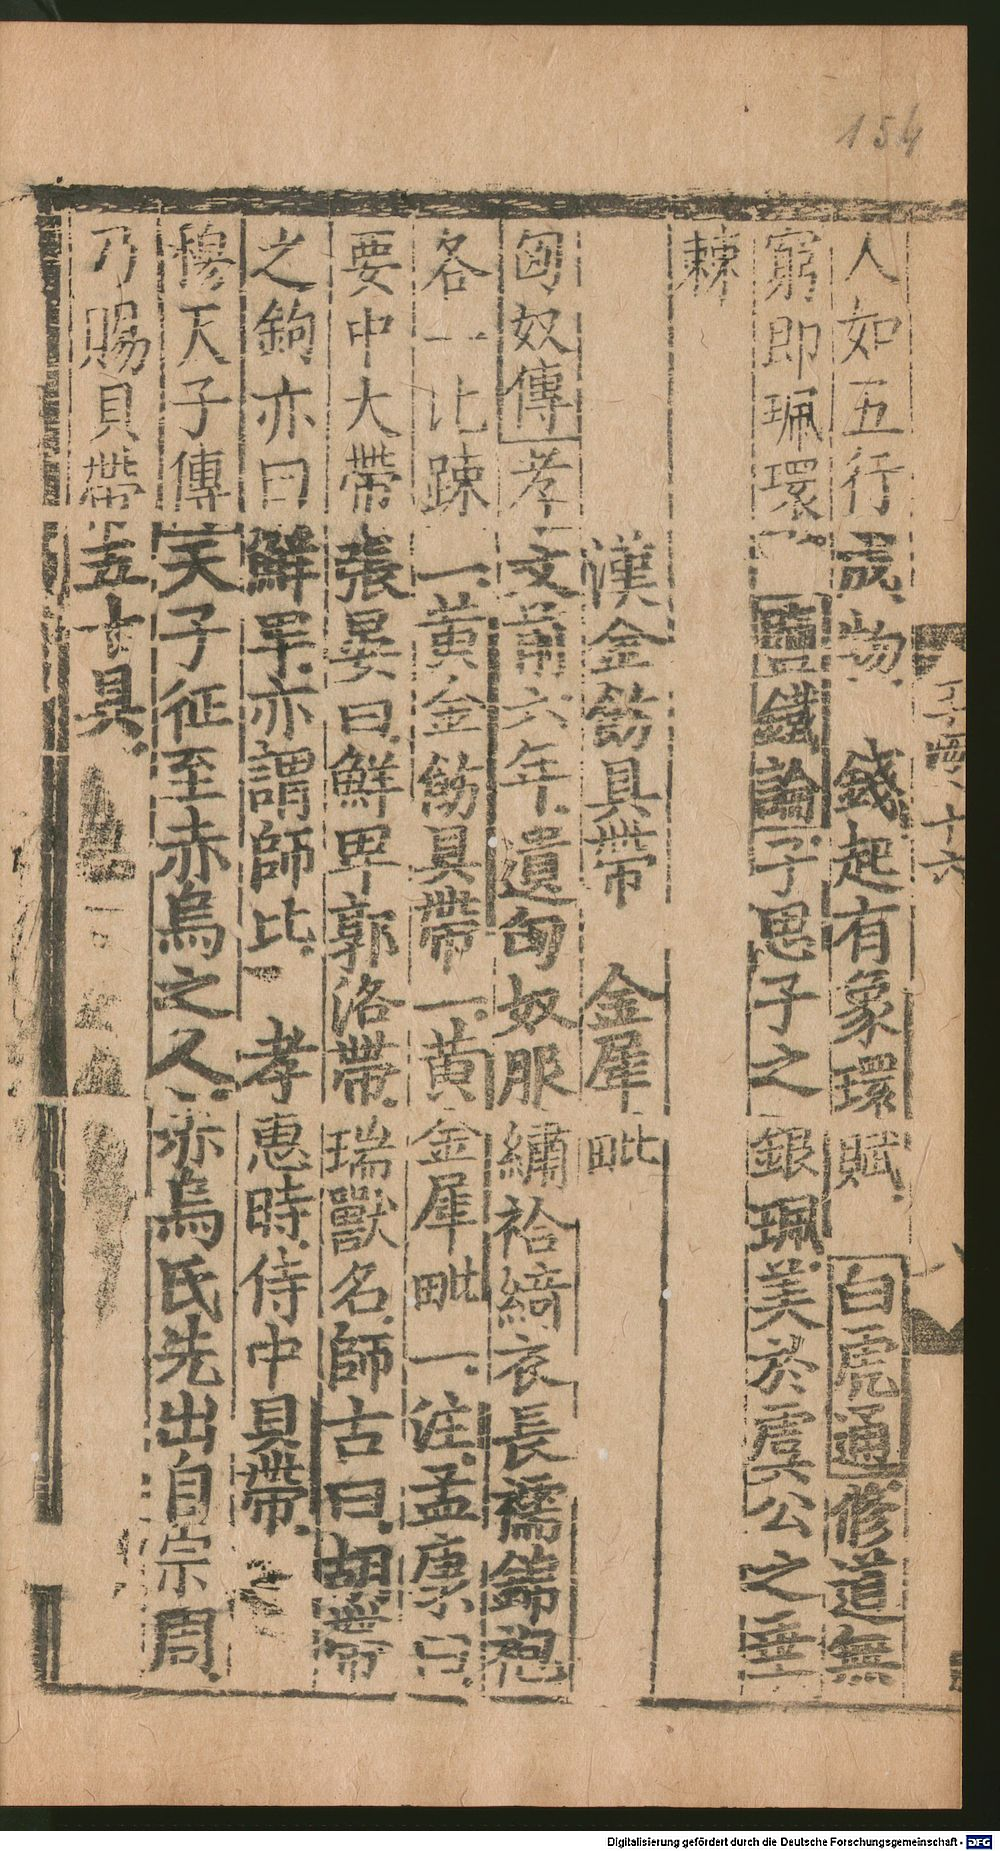 154
人如五行成物 錢起有象環賦 白虎通修道無
窮即珮環 鹽鐵論子思子之銀珮美於虞公之垂
棘
漢金飭具帶 金犀毗
匈奴傳孝文前六年遺匈奴服繡袷綺衣長襦錦袍
各一比踈一黃金飭具帶一黃金犀毗一注孟康曰
要中大帶張晏曰鮮卑郭洛帶瑞獸名師古曰胡帶
之鉤亦曰鮮卑亦謂師比 孝惠時侍中貝帶
穆天子傳天子征至赤烏之人赤烏氏先出自宗周
乃賜貝帶五十具
十六
Digitalisierung gefördert durch die Deutsche Forschungsgemeinschaft - DFG